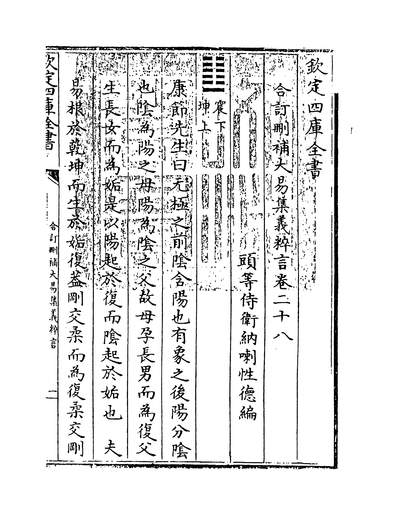 欽定四庫全書
合訂刪補大易集義粹言卷二十八
頭等侍衛納喇性德編
震下
坤上
康節先生曰无極之前陰含陽也有象之後陽分陰
也陰為陽之母陽為陰之父故母孕長男而為復父
生長女而為姤是以陽起於復而陰起於姤也 夫
易根於乾坤而生於姤復蓋剛交柔而為復柔交剛
欽定四庫全書
合訂刪補大易集義粹言